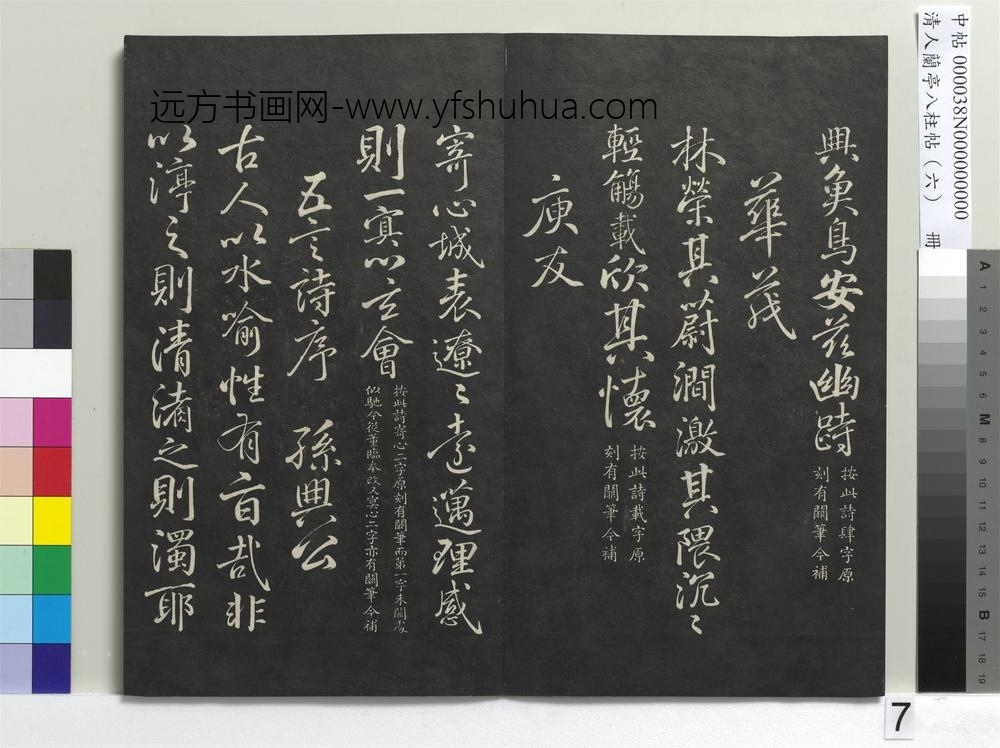 中帖 000038N000000000
清人蘭亭八柱帖（六） 冊
远方书画网-www.yfshuhua.com
興魚鳥安茲幽跱
按此詩肆字原
刻有闕筆今補
華茂
林榮其蔚澗激其隈汎〻
輕觴載欣其懷
按此詩載字原
刻有闕筆今補
庾友
寄心城表遼〻遠邁理感
則一冥心玄會
按此詩寄心二字原刻有闕筆而第一字未闕處
似馳今從董臨本改又冥心二字亦有闕筆今補
五言詩序 孫興公
古人以水喻性有旨哉非
以渟之則清淆之則濁耶
A 1 2 3 4 5 6 M 8 9 10 11 12 13 14 15 B 17 18 19
7